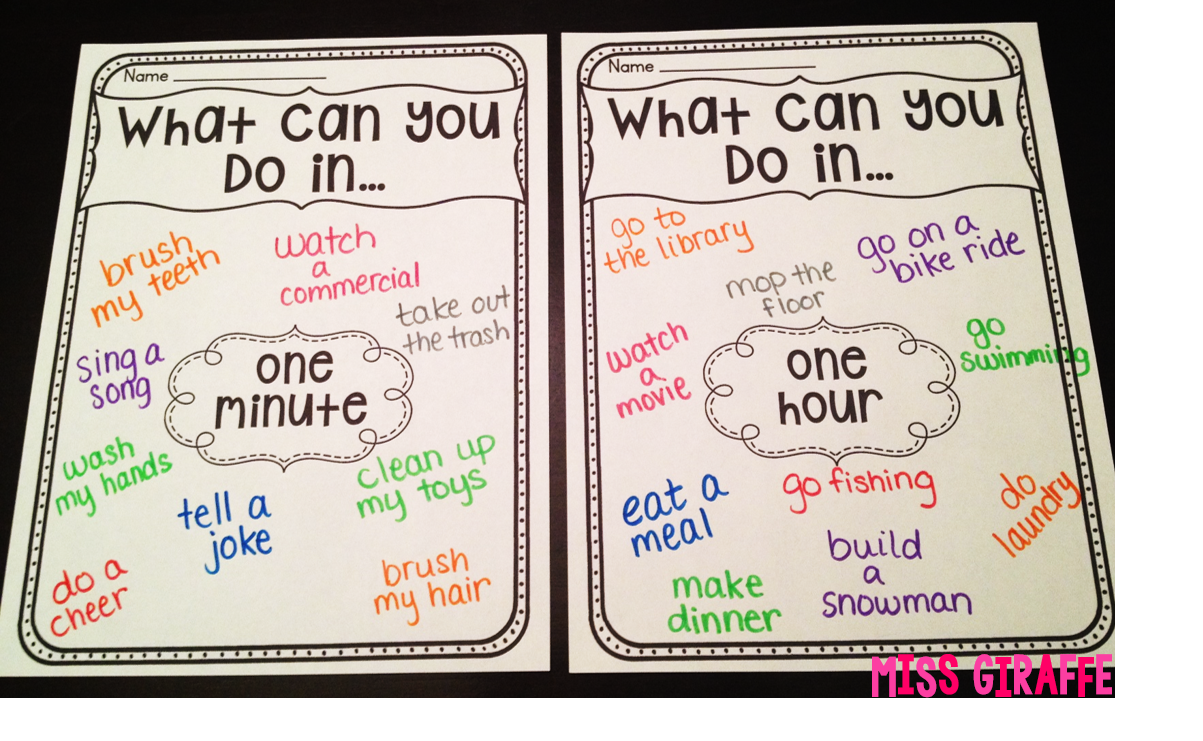 Name
What can you
Do in...
brush
my teeth
watch
a
commercial
take out
the trash
sing a
song
one
minute
wash
my hands
tell a
joke
clean up
my toys
do a
cheer
brush
my hair
Name
What can you
Do in...
go to
the library
go on a
bike ride
mop the
floor
watch
a
movie
one
hour
go
swimming
eat a
meal
go fishing
do
laundry
make
dinner
build
a
snowman
MISS GIRAFFE